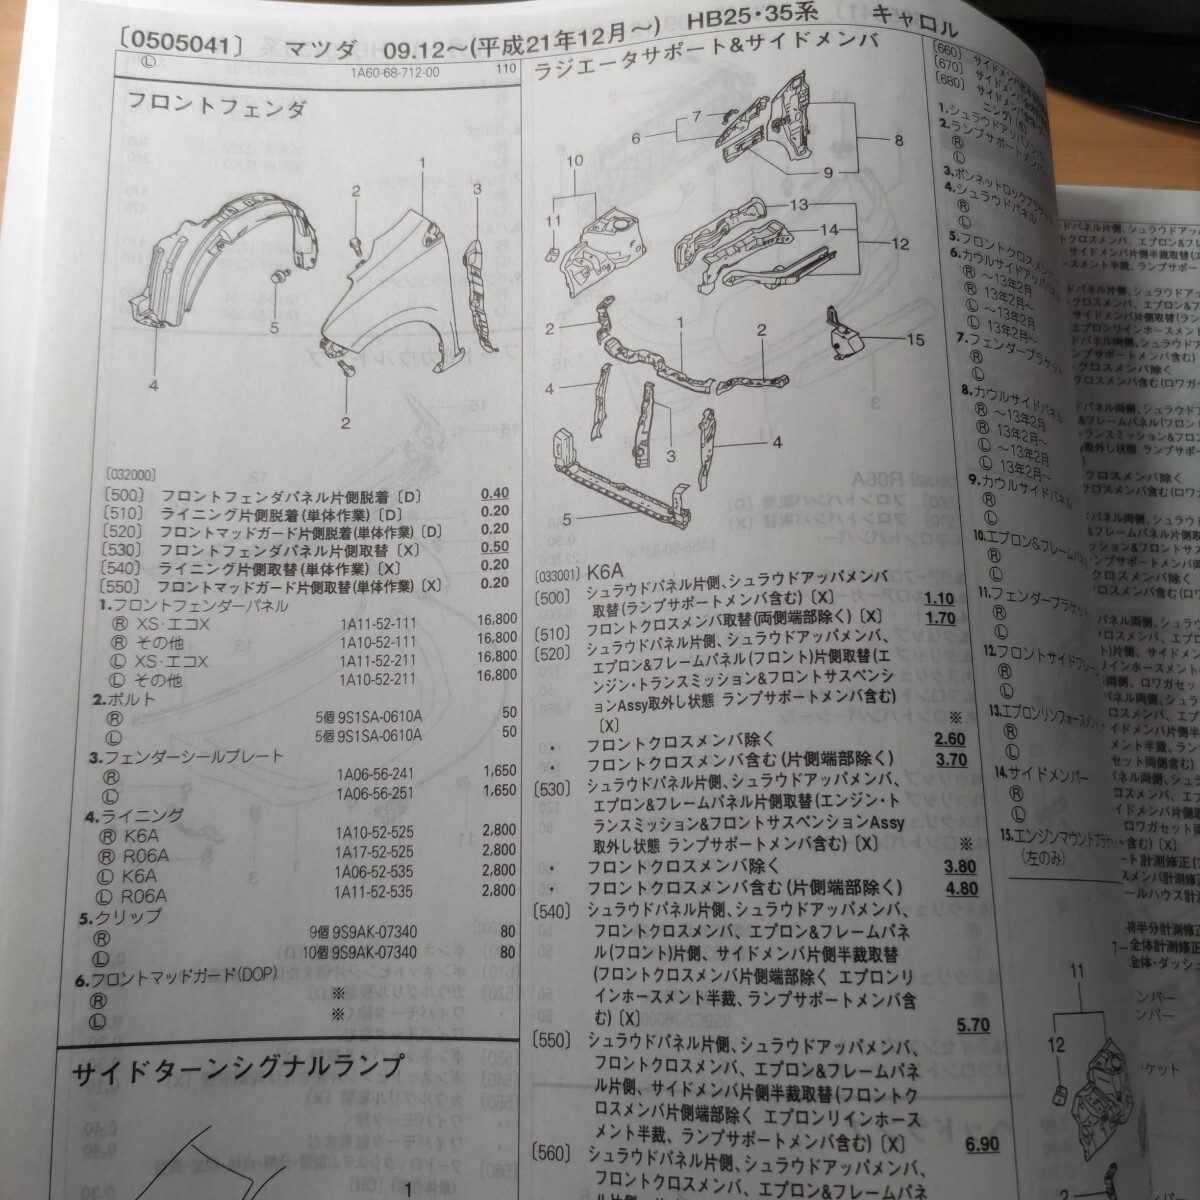 〔0505041〕 マツダ 09.12～(平成21年12月～) HB25・35系 キャロル
Ⓛ 1A60-68-712-00 110
フロントフェンダ
1
2
3
5
4
2
〔032000〕
〔500〕 フロントフェンダパネル片側脱着〔D〕 0.40
〔510〕 ライニング片側脱着(単体作業)〔D〕 0.20
〔520〕 フロントマッドガード片側脱着(単体作業)〔D〕 0.20
〔530〕 フロントフェンダパネル片側取替〔X〕 0.50
〔540〕 ライニング片側取替(単体作業)〔X〕 0.20
〔550〕 フロントマッドガード片側取替(単体作業)〔X〕 0.20
1.フロントフェンダーパネル
Ⓡ XS・エコX 1A11-52-111 16,800
Ⓡ その他 1A10-52-111 16,800
Ⓛ XS・エコX 1A11-52-211 16,800
Ⓛ その他 1A10-52-211 16,800
2.ボルト
Ⓡ 5個 9S1SA-0610A 50
Ⓛ 5個 9S1SA-0610A 50
3.フェンダーシールプレート
Ⓡ 1A06-56-241 1,650
Ⓛ 1A06-56-251 1,650
4.ライニング
Ⓡ K6A 1A10-52-525 2,800
Ⓡ R06A 1A17-52-525 2,800
Ⓛ K6A 1A06-52-535 2,800
Ⓛ R06A 1A11-52-535 2,800
5.クリップ
Ⓡ 9個 9S9AK-07340 80
Ⓛ 10個 9S9AK-07340 80
6.フロントマッドガード(DOP)
Ⓡ ※
Ⓛ ※
サイドターンシグナルランプ
1
ラジエータサポート&サイドメンバ
7
6
8
9
10
11
13
14
12
2
1
2
15
4
3
4
5
〔033001〕 K6A
〔500〕 シュラウドパネル片側、シュラウドアッパメンバ
取替(ランプサポートメンバ含む)〔X〕 1.10
〔510〕 フロントクロスメンバ取替(両側端部除く)〔X〕 1.70
〔520〕 シュラウドパネル片側、シュラウドアッパメンバ、
エプロン&フレームパネル(フロント)片側取替(エ
ンジン・トランスミッション&フロントサスペンシ
ョンAssy取外し状態 ランプサポートメンバ含む)
〔X〕 ※
・ フロントクロスメンバ除く 2.60
・ フロントクロスメンバ含む(片側端部除く) 3.70
〔530〕 シュラウドパネル片側、シュラウドアッパメンバ、
エプロン&フレームパネル片側取替(エンジン・ト
ランスミッション&フロントサスペンションAssy
取外し状態 ランプサポートメンバ含む)〔X〕 ※
・ フロントクロスメンバ除く 3.80
・ フロントクロスメンバ含む(片側端部除く) 4.80
〔540〕 シュラウドパネル片側、シュラウドアッパメンバ、
フロントクロスメンバ、エプロン&フレームパネ
ル(フロント)片側、サイドメンバ片側半裁取替
(フロントクロスメンバ片側端部除く エプロンリ
インホースメント半裁、ランプサポートメンバ含
む)〔X〕 5.70
〔550〕 シュラウドパネル片側、シュラウドアッパメンバ、
フロントクロスメンバ、エプロン&フレームパネ
ル片側、サイドメンバ片側半裁取替(フロントク
ロスメンバ片側端部除く エプロンリインホース
メント半裁、ランプサポートメンバ含む)〔X〕 6.90
〔560〕 シュラウドパネル片側、シュラウドアッパメンバ、
フロントクロスメンバ、エプロン&フレームパネ
〔660〕
〔670〕
〔680〕
1.シュラウドアッパメンバ
2.ランプサポートメンバ
Ⓡ
Ⓛ
3.ボンネットロックブラケット
4.シュラウドパネル
Ⓡ
Ⓛ
5.フロントクロスメンバー
6.カウルサイドアッパパネル
Ⓡ ～13年2月
Ⓡ 13年2月～
Ⓛ ～13年2月
Ⓛ 13年2月～
7.フェンダーブラケット
Ⓡ
Ⓛ
8.カウルサイドパネル
Ⓡ ～13年2月
Ⓡ 13年2月～
Ⓛ ～13年2月
Ⓛ 13年2月～
9.カウルサイドパネル
Ⓡ
Ⓛ
10.エプロン&フレームパネル
Ⓡ
Ⓛ
11.フェンダーブラケット
Ⓡ
Ⓛ
12.フロントサイドフレーム
Ⓡ
Ⓛ
13.エプロンリンフォースメント
Ⓡ
Ⓛ
14.サイドメンバー
Ⓡ
Ⓛ
15.エンジンマウントブラケット
(左のみ)
11
12
2